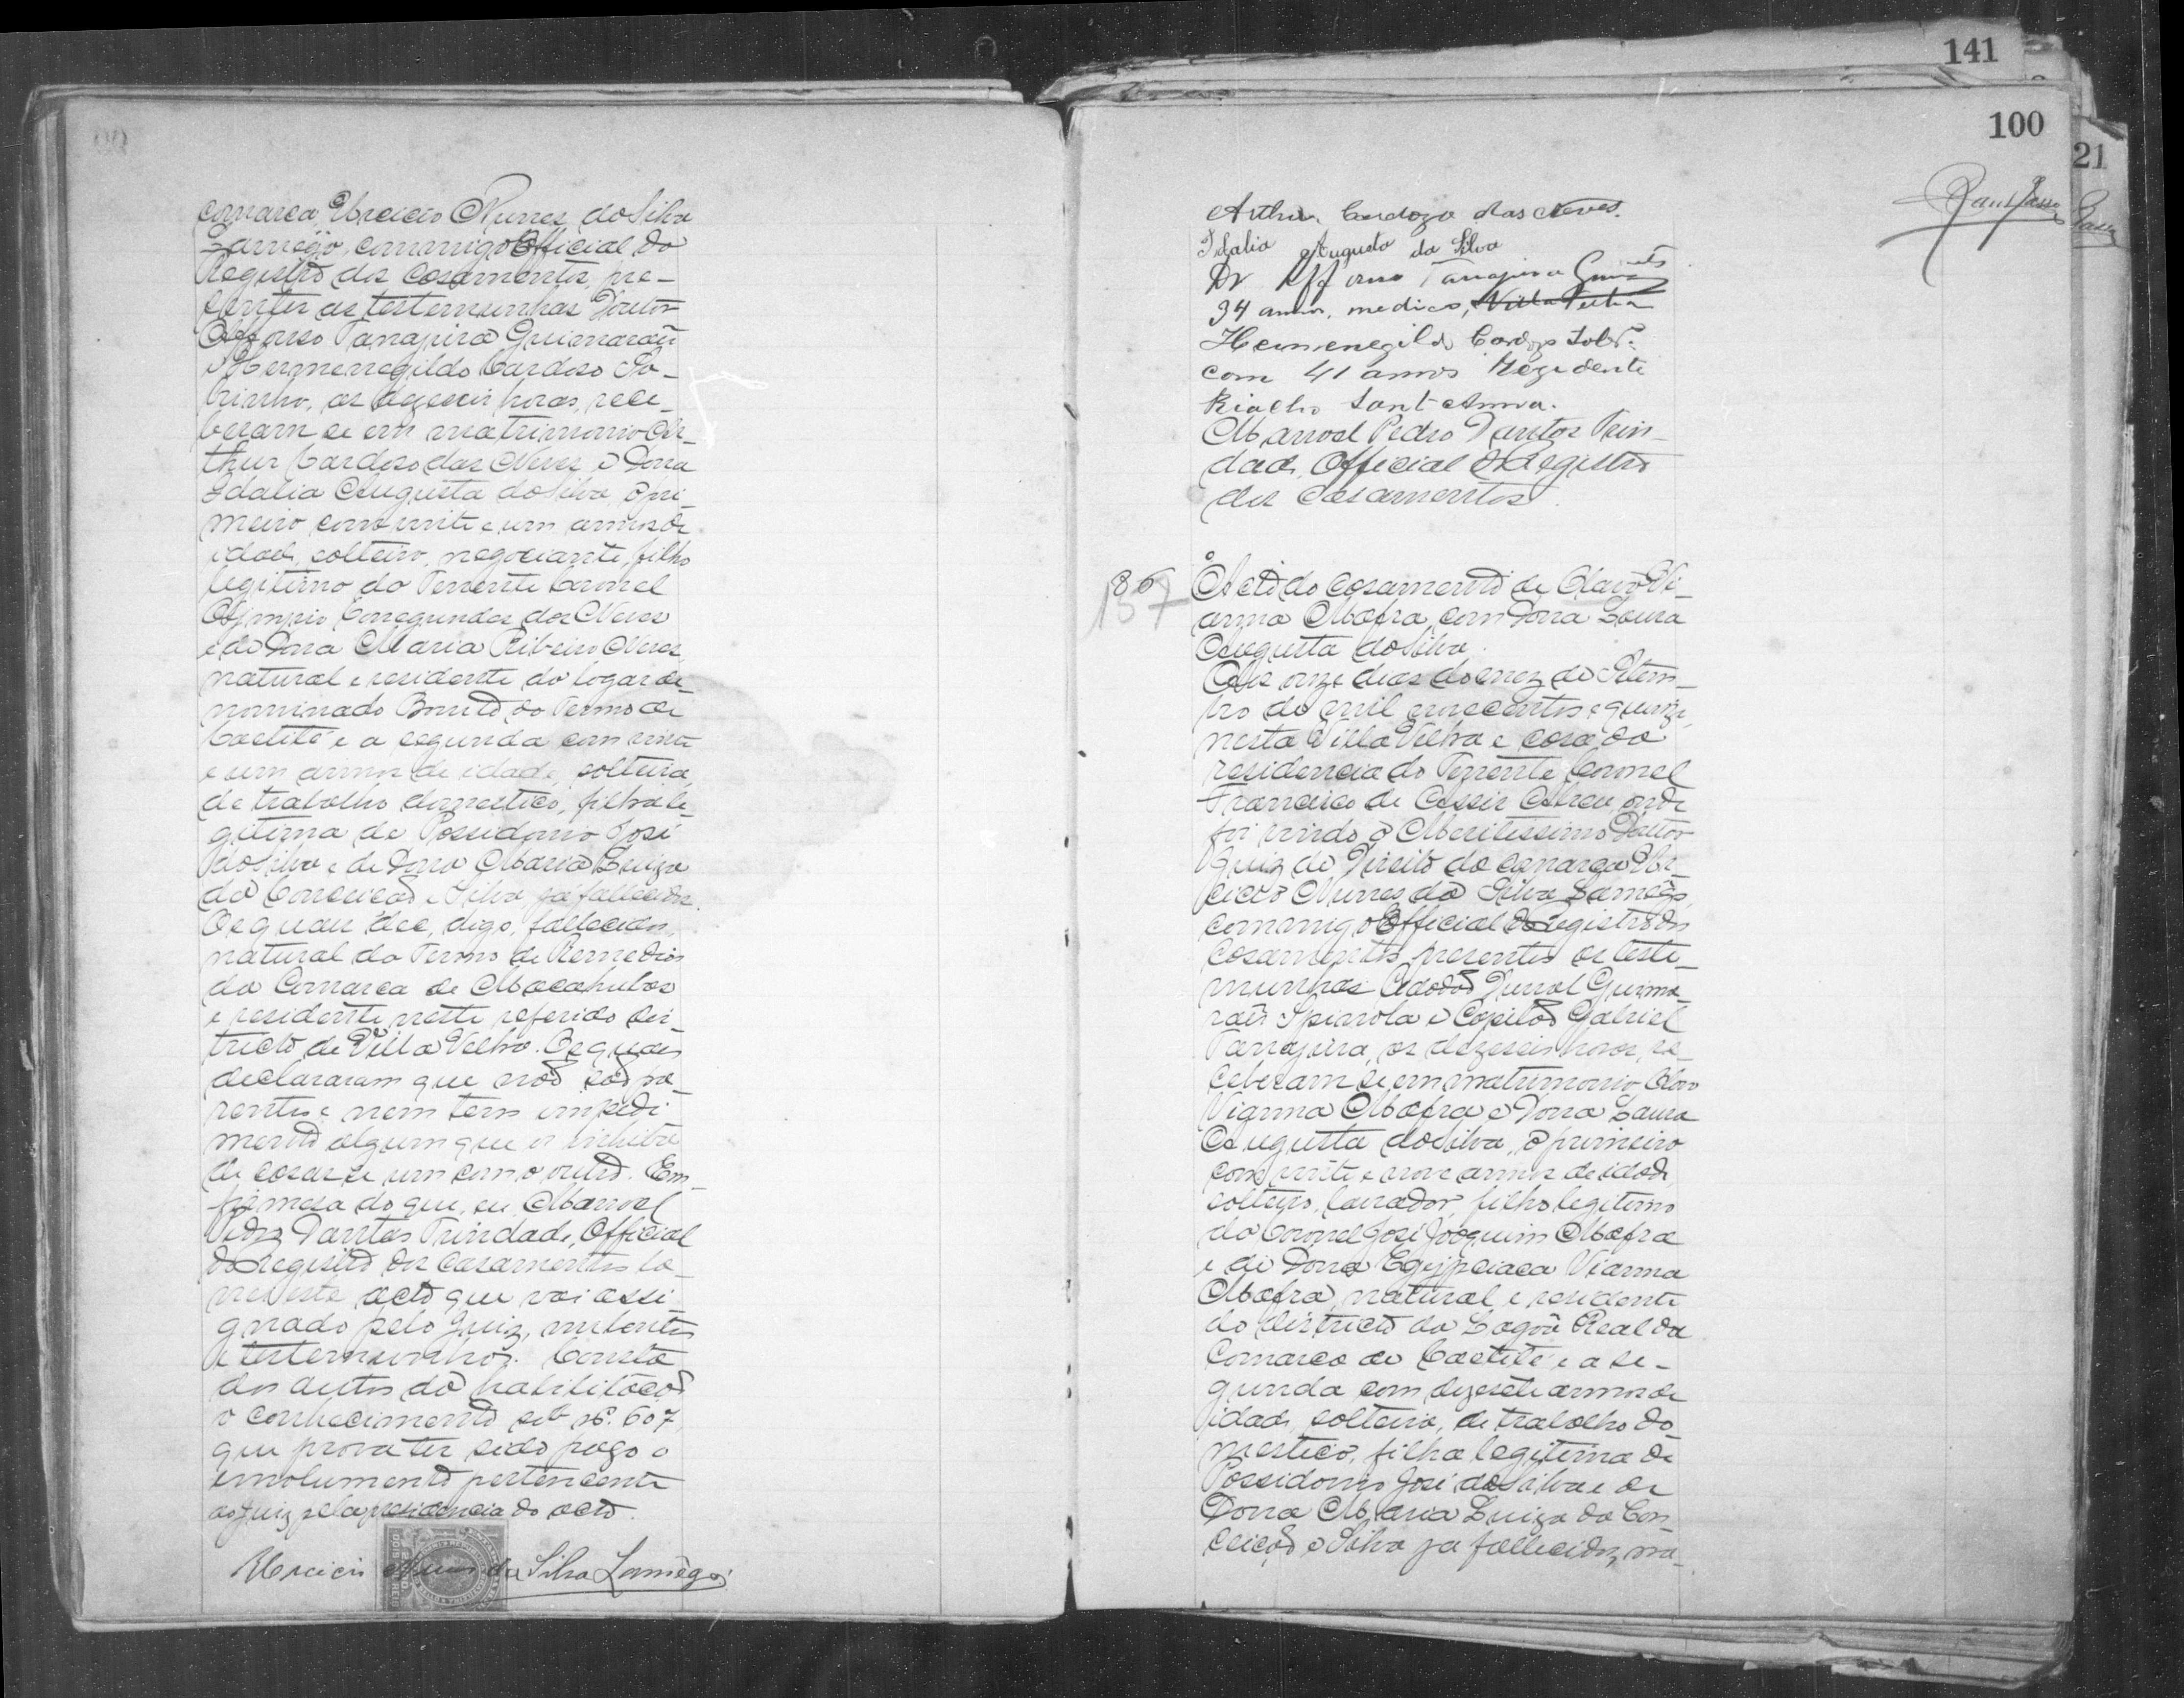 comarca Urcicio Nunes da Silva
Lamêgo, commigo Official do
Registro dos Casamentos, pre-
sentes as testemunhas Doutor
Affonso Tanajura Guimarães
e Hermenegildo Cardoso So-
brinho, as dezeseis horas, rece-
beram se em matrimonio Ar-
thur Cardoso das Neves e Dona
Idalia Augusta da Silva, o pri-
meiro com vinte e um annos de
idade, solteiro, negociante, filho
legitimo do Tenente Coronel
Olympio das Neves
e de Dona Maria Ribeiro Neves,
natural e residente do logar de-
nominado Bonito do Termo de
Caetité e a segunda com vinte
e um annos de idade, solteira,
de trabalho domestico, filha le-
gitima de Possidonio José
da Silva e de Dona Maria Luiza
da Conceicão e Silva já fallecidos.
Os quaes dec, digo, fallecidos,
natural do Termo de Remedios
da Comarca de Macahubas
e residente neste referido dis-
tricto de Villa Velha. Os quaes
declararam que não são pa-
rentes e nem tem impedi
mento algum que os inhiba
de casar se um com o outro. Em
firmesa do que, eu Manoel
Pedro Dantas Trindade, Official
do Registro dos Casamentos la-
vrei este acto que vai assi-
gnado pelo Juiz, nubentes
e testemunhas. Consta
dos autos da habilitacão
o conhecimento sob nº. 607,
que prova ter sido pago o
emolumento pertencente
ao Juiz pela presidencia do acto.
Urcicio Nunes da Silva Lamêgo
141
100
21
Arthur Cardozo das Neves.
Idalia Augusta da Silva
Dr Affonso Tanajura Guimes
34 annos, medico, Villa Velha
Hermenegildo Cardozo Sobrº.
com 41 annos Rezidente
Riacho Sant Anna.
Manoel Pedro Dantas Trin-
dade, Official do Registro
dos Casamentos.
86
137
Acto do casamento de Olavo Vi-
anna Mafra, com Dona Laura
Augusta da Silva.
Aos onze dias do mez de Setem-
bro de mil novecentos e quinze,
nesta Villa Velha e casa da
residencia do Tenente Coronel
Francisco de Assis Abreu, onde
foi vindo o Meritissimo Doutor
Juiz de Direito da comarca Ur-
cicio Nunes da Silva Lamêgo,
commigo Official do Registro dos
Casamentos, presentes as teste-
munhas Guima-
rães Spinola e Capitão Gabriel
Tanajura, as dezeseis horas, re-
ceberam se em matrimonio Olavo
Vianna Mafra e Dona Laura
Augusta da Silva, o primeiro
com vinte e nove annos de idade,
solteiro, lavrador, filho legitimo
do Coronel José Joaquim Mafra
e de Dona Egypciaca Vianna
Mafra, natural e residente
do districto da Lagôa Real da
Comarca de Caetité e a se-
gunda com dezesete annos de
idade, solteira, de trabalho do-
mestico, filha legitima de
Possidonio José da Silva e de
Dona Maria Luiza da Con-
ceição e Silva ja fallecidos, na-